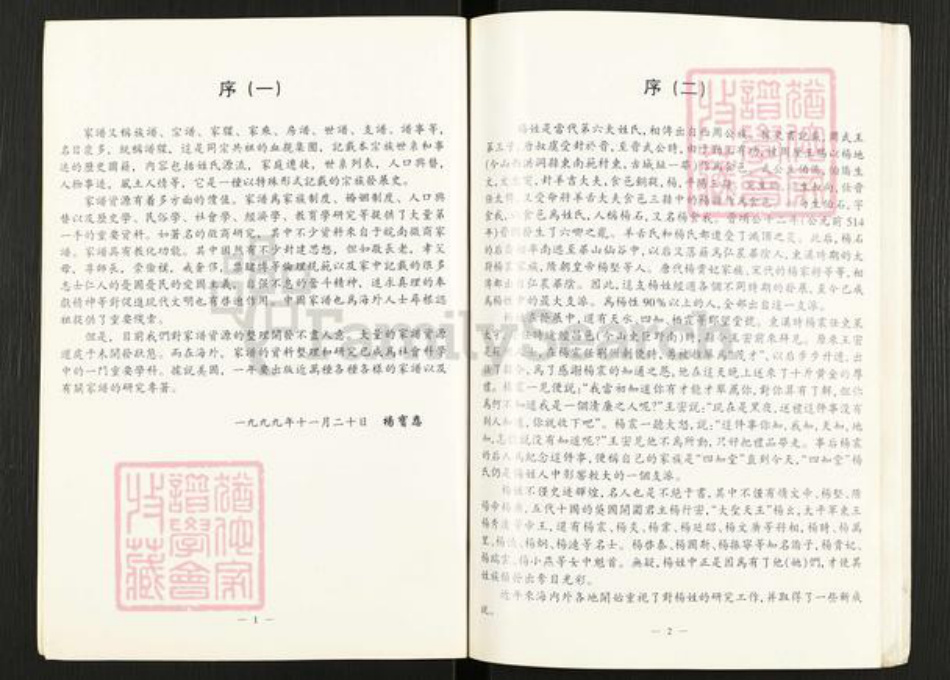 序(一)
家譜又稱族譜、宗譜、家牒、家乘、房譜、世譜、支譜、譜事等,
名目衆多,統稱譜牒,這是同宗共祖的血親集團,記載本宗族世系和事
迹的歷史圖籍,内容包括姓氏源流,家庭遷技,世系列表,人口興替,
人物事迹,風土人情等,它是一種以特殊形式記載的宗族發展史。
家譜資源有着多方面的價值。家譜爲家族制度、婚姻制度、人口興
替以及歷史學、民俗學、社會學、經濟學、教育學研究等提供了大量第
一手的重要資料。如著名的徽商研究,其中不少資料來自于皖南徽商家
譜。家譜具有教化功能。其中固然有不少封建思想,但如敬長老,孝父
母,尊師長,崇儉樸,戒奢侈,禁賭博等倫理規範以及家中記載的很多
志士仁人的憂國憂民的愛國主義,自强不息的奮斗精神,追求真理的奉
獻精神等對促進現代文明也有啓迪作用。中國家譜也爲海外人士尋根認
祖提供了重要綫索。
但是,目前我們對家譜資源的整理開發不盡人意,大量的家譜資源
還處于未開發狀態。而在海外,家譜的資料整理和研究已成爲社會科學
中的一門重要學科。據説美國,一年要出版近萬種各種各樣的家譜以及
有關家譜的研究專著。
一九九九年十一月二十日 楊寶
猶他家
譜學會
收藏
— 1 —
序(二)
猶他家
譜學會
收藏
姓是當代第六大姓氏,相傳出自西周公族。
第三子 唐叔虞受封於晋,至晋武公時,
(今山西洪洞縣東南范村東,古城址一帶)
封羊舌大夫,食邑銅鞮、楊、平陽三
又受命將羊舌大夫食邑三縣中的楊
食邑爲姓氏,人稱楊石,又名楊食我。晋頃公十二年(公元前514
年)晋國發生了六卿之亂。羊舌氏和楊氏都遭受了滅頂之灾。此后,楊石
的后裔 南逃至華山仙谷中,以后又落籍爲弘農華陰人,東漢時期的太
尉楊震家族,隋朝皇帝楊堅等人。唐代楊貴妃家族,宋代的楊家將等等,相
傳都出自弘農華陰。因此,這支楊姓經過各個不同時期的發展,至今已成
爲楊姓中的最大支派。爲楊姓90%以上的人,全部出自這一支派。
發展中,還有天水、四知、栖霞等郡望堂號。東漢時楊震任東萊
時途經昌邑(今山東巨野南)時,縣令王密前來拜見。原來王密
在楊震任荆州刺使時,
爲了感謝楊震的知遇之恩,他在這天晚上送來了十斤黄金的厚
禮。楊震一見便説:“我當初知道你有才能才舉薦你,對你算有了解,但你
爲何不知道我是一個清廉之人呢?”王密説:“現在是黑夜,送禮這件事没有
别人知道,你就收下吧”。楊震一聽大怒,説:“這件事你知,我知,天知,地
知,怎能説没有知道呢?”王密見他不爲所動,只好把禮品帶走。事后楊震
的后人爲紀念這件事,便稱自己的家族是“四知堂”直到今天,“四知堂”楊
氏仍是楊姓人中影響較大的一個支派。
楊姓不僅史迹輝煌,名人也是不絶于書,其中不僅有隋文帝、楊堅,隋
煬帝楊廣,五代十國的吴國開國君主楊行密,“大聖天王”楊幺,太平軍東王
楊秀清等帝王,還有楊震、楊炎、楊業、楊延昭、楊文廣等將相,楊時、楊萬
里、楊 、楊炯、楊漣等名士。楊啓泰、楊國斯、楊振寧等知名博子,楊貴妃、
楊小燕等女中魁首。無疑,楊姓中正是因爲有了他(她)們,才使其
姓族 出奪目光彩。
近年來海内外各地開始重視了對楊姓的研究工作,并取得了一些新成
就。
— 2 —
FamilySearch